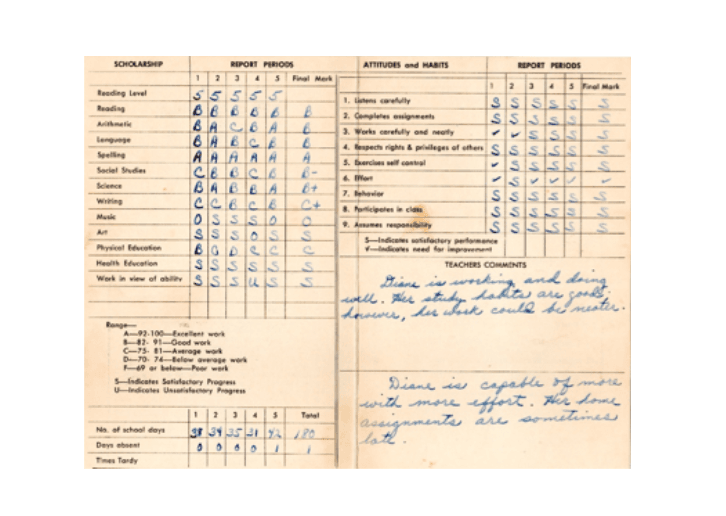 SCHOLARSHIP REPORT PERIODS
1 2 3 4 5 Final Mark
Reading Level 5 5 5 5 5
Reading B B B B B B
Arithmetic B A C B A B
Language B A B C B B
Spelling A A A A A A
Social Studies C B B C B B-
Science B A B B A B+
Writing C C B C B C+
Music O S S S O O
Art S S S O S S
Physical Education B C D C C
Health Education S S S S S S
Work in view of ability S S S U S S
Range—
A—92-100—Excellent work
B—82- 91—Good work
C—75- 81—Average work
D—70- 74—Below average work
F—69 or below—Poor work
S—Indicates Satisfactory Progress
U—Indicates Unsatisfactory Progress
1 2 3 4 5 Total
No. of school days 38 34 35 31 42 180
Days absent 0 0 0 0 1 1
Times Tardy
ATTITUDES and HABITS REPORT PERIODS
1 2 3 4 5 Final Mark
1. Listens carefully S S S S S S
2. Completes assignments S S S S S S
3. Works carefully and neatly ✓ ✓ S S S S
4. Respects rights & privileges of others S S S S S S
5. Exercises self control ✓ S S S S S
6. Effort ✓ S ✓ ✓ ✓ ✓
7. Behavior S S S S S S
8. Participates in class S S S S S S
9. Assumes responsibility S S S S S S
S—Indicates satisfactory performance
✓—Indicates need for improvement
TEACHERS COMMENTS
Diane is working and doing
well. Her study habits are good.
however, her work could be neater.
Diane is capable of more
with more effort. Her home
assignments are sometimes
late.